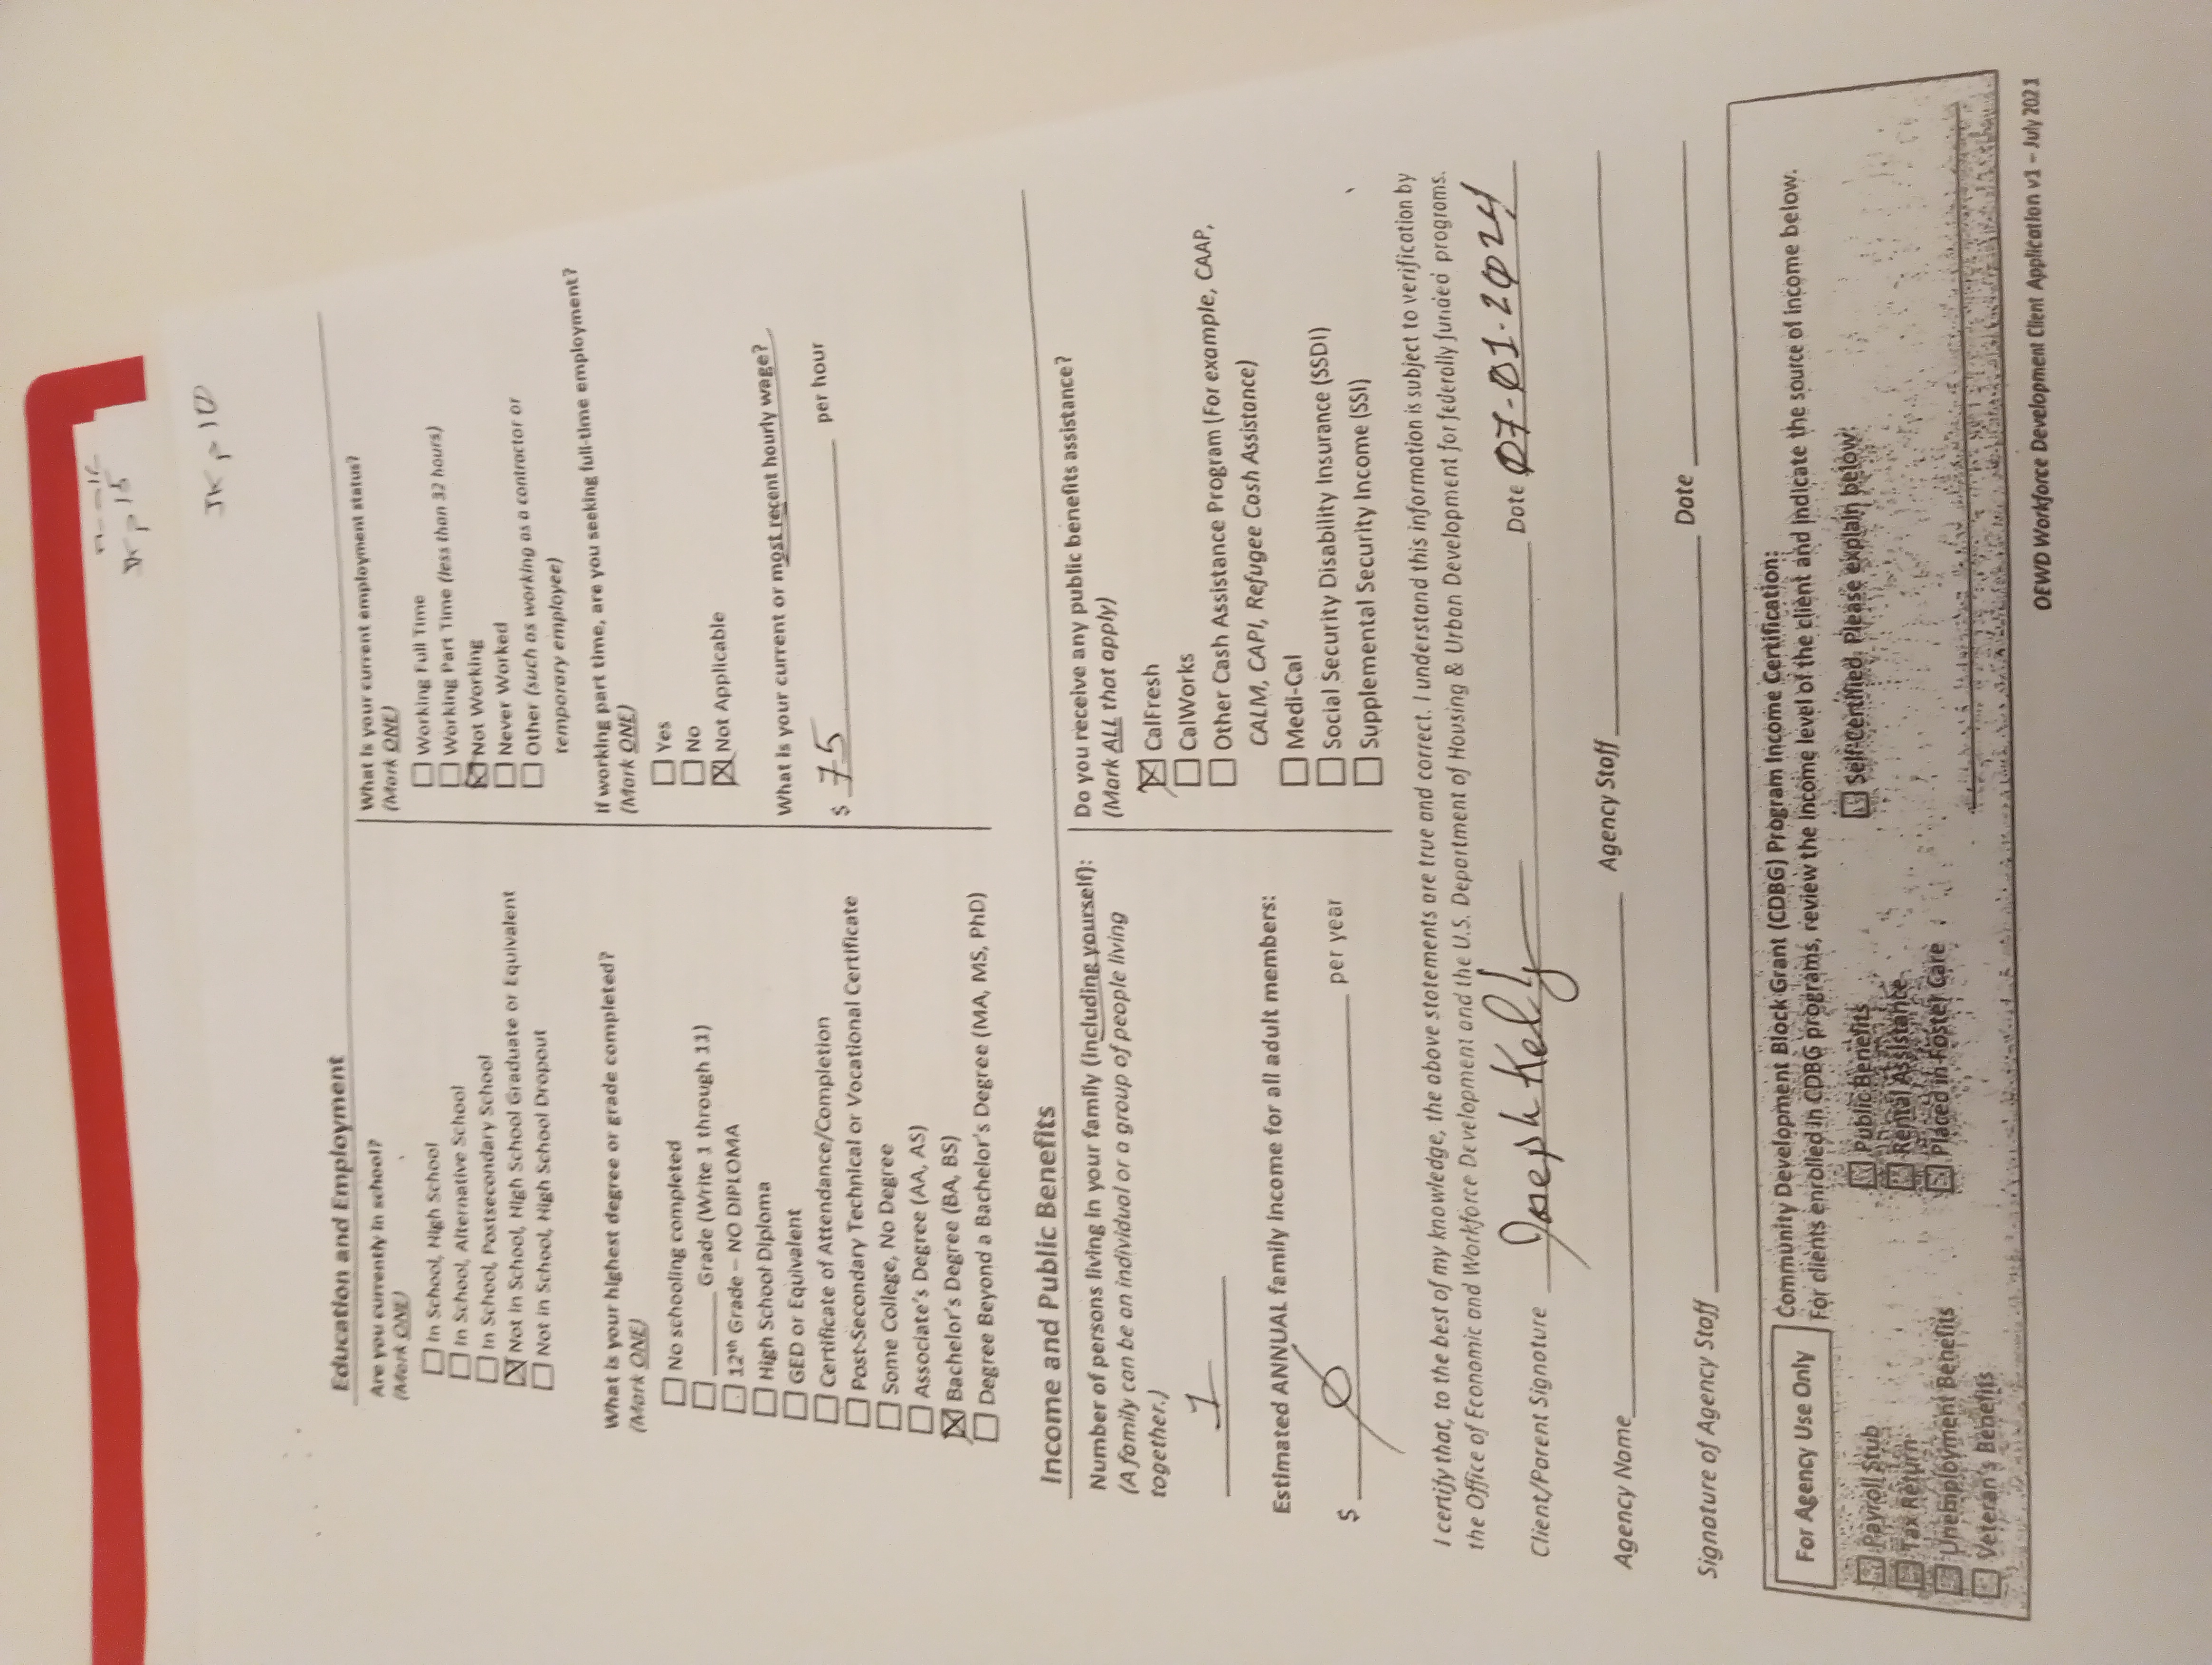 JK p 15
JK p 10
Education and Employment
Are you currently in school?
(Mark ONE)
☐ In School, High School
☐ In School, Alternative School
☐ In School, Postsecondary School
☒ Not in School, High School Graduate or Equivalent
☐ Not in School, High School Dropout
What is your highest degree or grade completed?
(Mark ONE)
☐ No schooling completed
☐ ______ Grade (Write 1 through 11)
☐ 12th Grade – NO DIPLOMA
☐ High School Diploma
☐ GED or Equivalent
☐ Certificate of Attendance/Completion
☐ Post-Secondary Technical or Vocational Certificate
☐ Some College, No Degree
☐ Associate's Degree (AA, AS)
☒ Bachelor's Degree (BA, BS)
☐ Degree Beyond a Bachelor's Degree (MA, MS, PhD)
What is your current employment status?
(Mark ONE)
☐ Working Full Time
☐ Working Part Time (less than 32 hours)
☒ Not Working
☐ Never Worked
☐ Other (such as working as a contractor or
temporary employee)
If working part time, are you seeking full-time employment?
(Mark ONE)
☐ Yes
☐ No
☒ Not Applicable
What is your current or most recent hourly wage?
$ 75 per hour
Income and Public Benefits
Number of persons living in your family (including yourself):
(A family can be an individual or a group of people living
together.)
1
Estimated ANNUAL family income for all adult members:
$ 0 per year
Do you receive any public benefits assistance?
(Mark ALL that apply)
☒ CalFresh
☐ CalWorks
☐ Other Cash Assistance Program (For example, CAAP,
CALM, CAPI, Refugee Cash Assistance)
☐ Medi-Cal
☐ Social Security Disability Insurance (SSDI)
☐ Supplemental Security Income (SSI)
I certify that, to the best of my knowledge, the above statements are true and correct. I understand this information is subject to verification by
the Office of Economic and Workforce Development and the U.S. Department of Housing & Urban Development for federally funded programs.
Client/Parent Signature Joseph Kelly Date 07-01-2024
Agency Name Agency Staff
Signature of Agency Staff Date
For Agency Use Only
Community Development Block Grant (CDBG) Program Income Certification:
For clients enrolled in CDBG programs, review the income level of the client and indicate the source of income below.
☐ Payroll Stub
☐ Tax Return
☐ Unemployment Benefits
☐ Veteran's Benefits
☐ Public Benefits
☐ Rental Assistance
☐ Placed in Foster Care
☐ Self-Certified. Please explain below:
OEWD Workforce Development Client Application v1 – July 2021